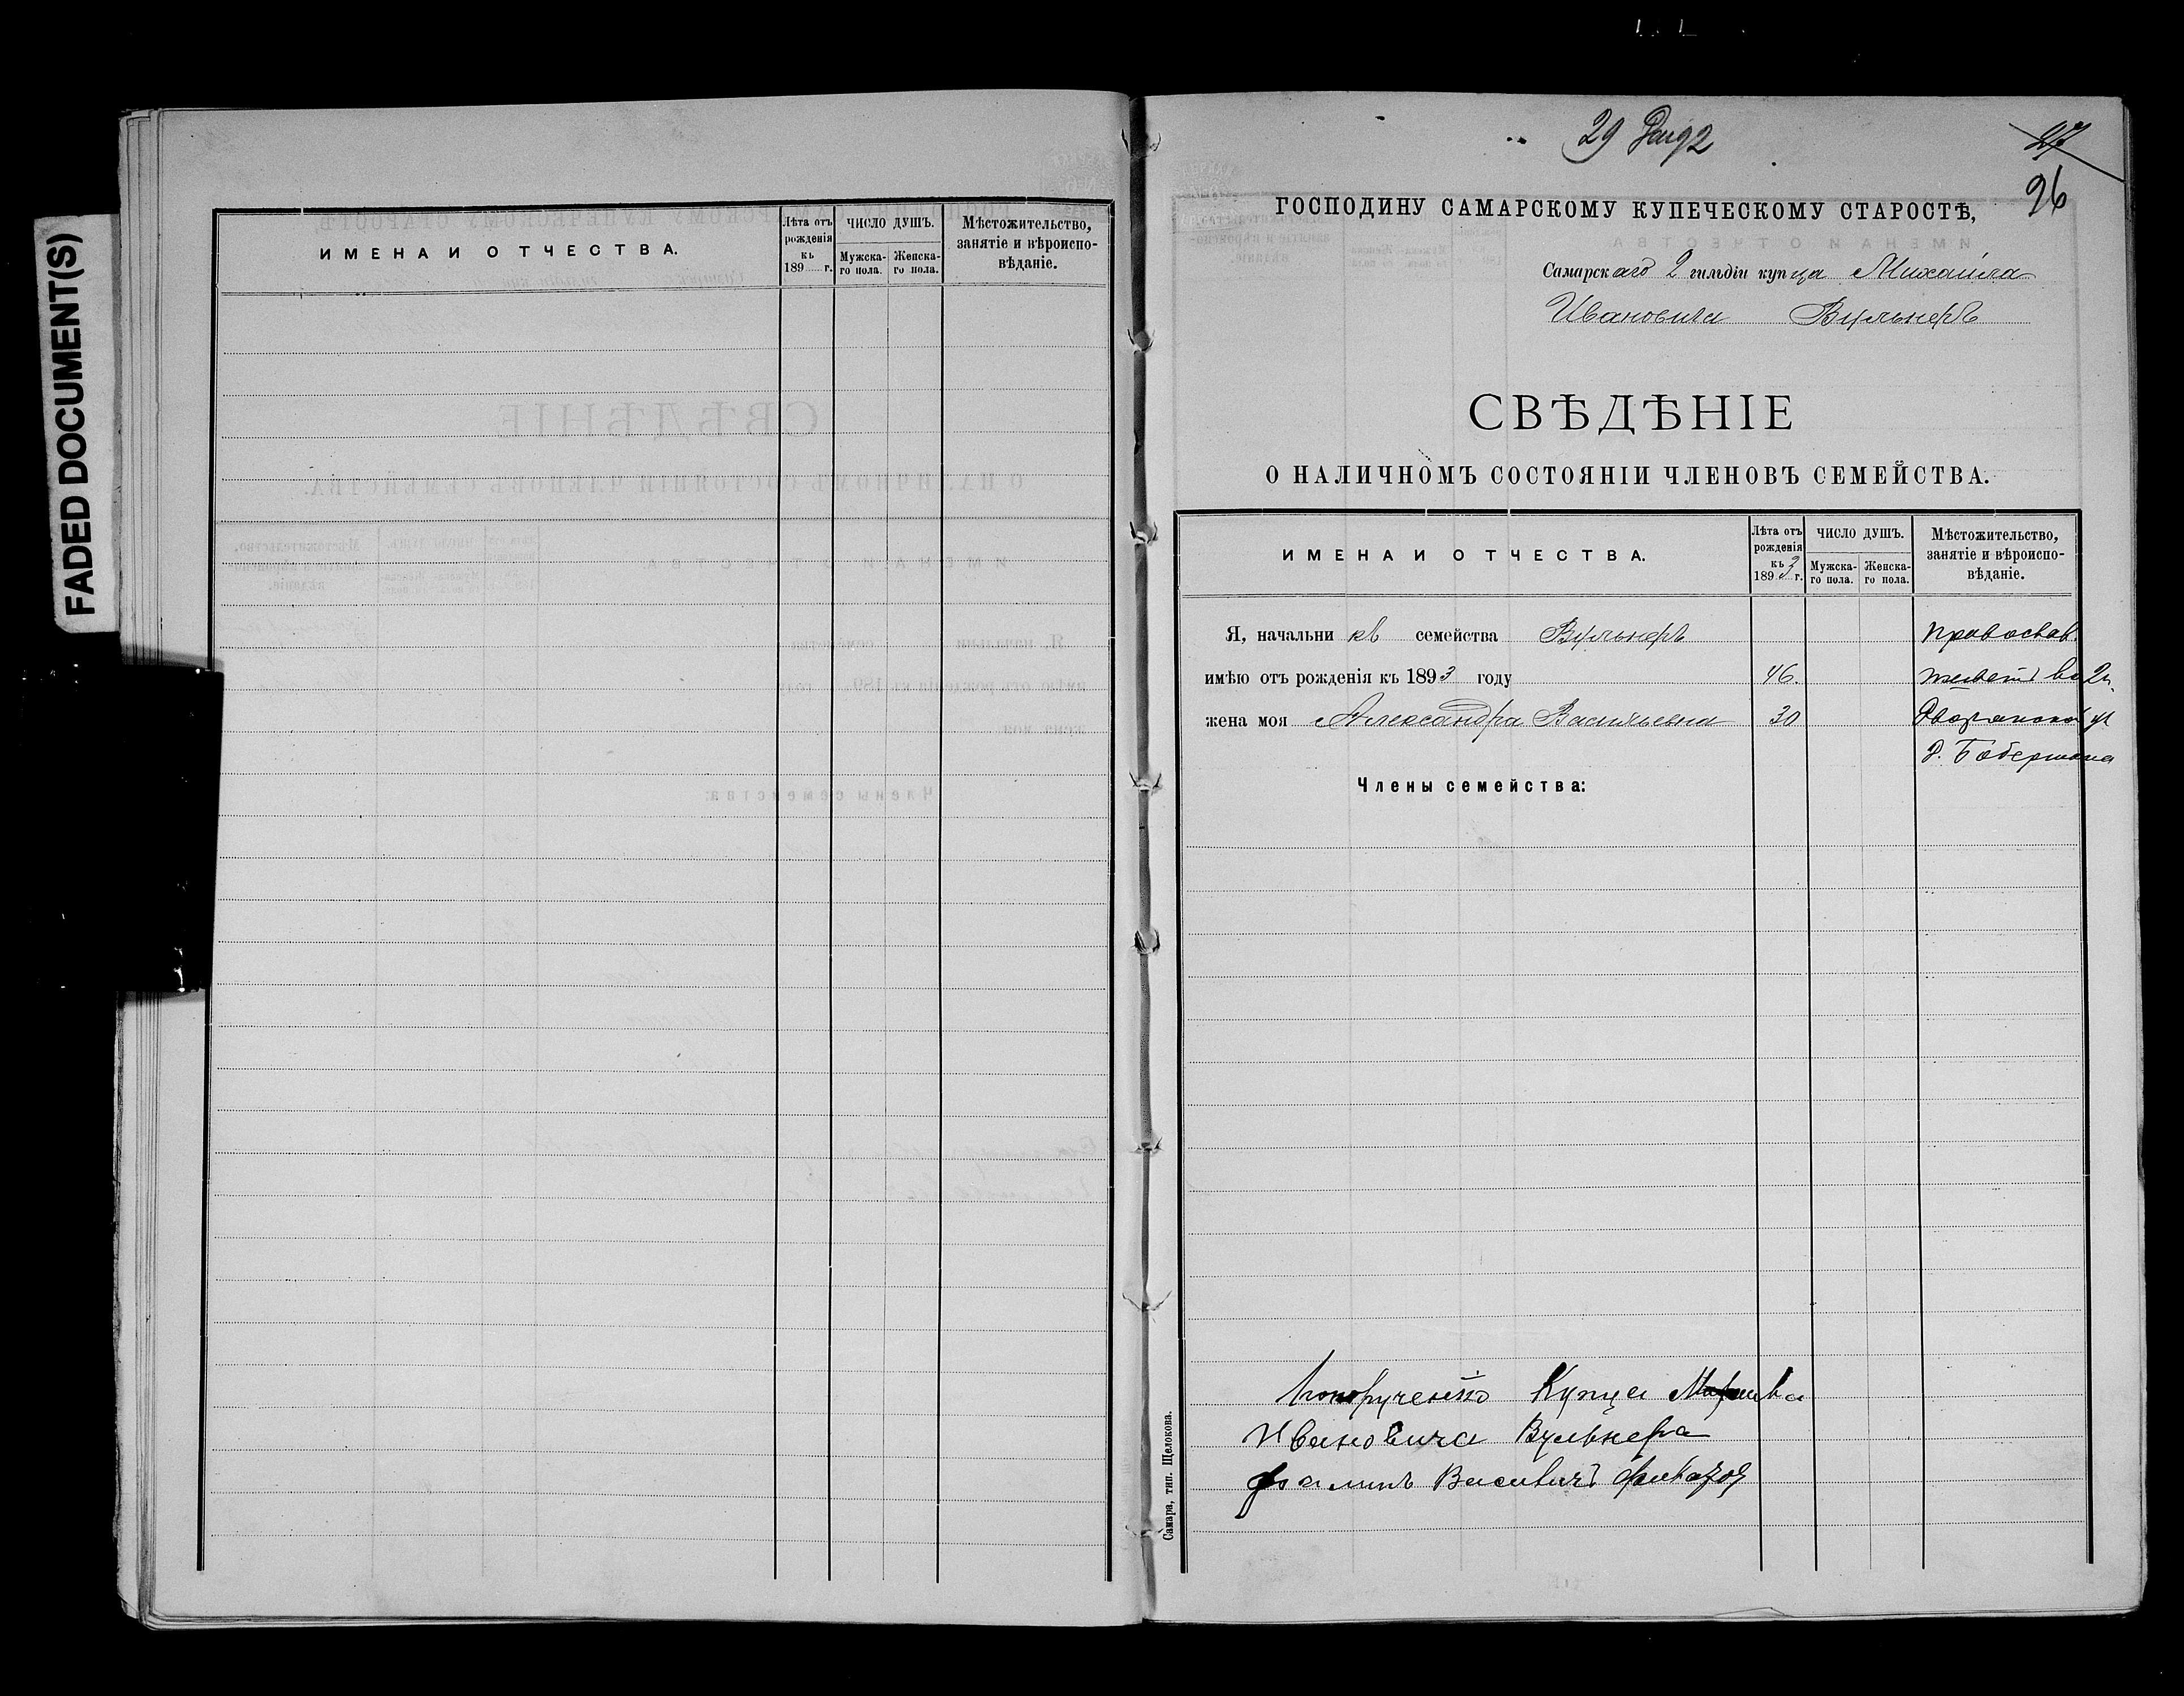 FADED DOCUMENT(S)
ИМЕНА И ОТЧЕСТВА.
Лѣта отъ рожденія къ 189 г.
ЧИСЛО ДУШЪ.
Мужска-го пола.
Женска-го пола.
Мѣстожительство, занятіе и вѣроиспо-вѣданіе.
29
27
26
ГОСПОДИНУ САМАРСКОМУ КУПЕЧЕСКОМУ СТАРОСТѢ,
Самарскаго 2 гильдіи купца Михаила
Ивановича Вульнеръ
СВѢДѢНІЕ
О НАЛИЧНОМЪ СОСТОЯНІИ ЧЛЕНОВЪ СЕМЕЙСТВА.
ИМЕНА И ОТЧЕСТВА.
Лѣта отъ рожденія къ 1893 г.
ЧИСЛО ДУШЪ.
Мужска-го пола.
Женска-го пола.
Мѣстожительство, занятіе и вѣроиспо-вѣданіе.
Я, начальникъ семейства Вульнеръ православ.
имѣю отъ рожденія къ 1893 году 46. во 2й
жена моя Александра Васильевна 30 Дворянской ул
д. Бобермана
Члены семейства:
Купца
Ивановича Вульнера
Самара, тип. Щелокова.